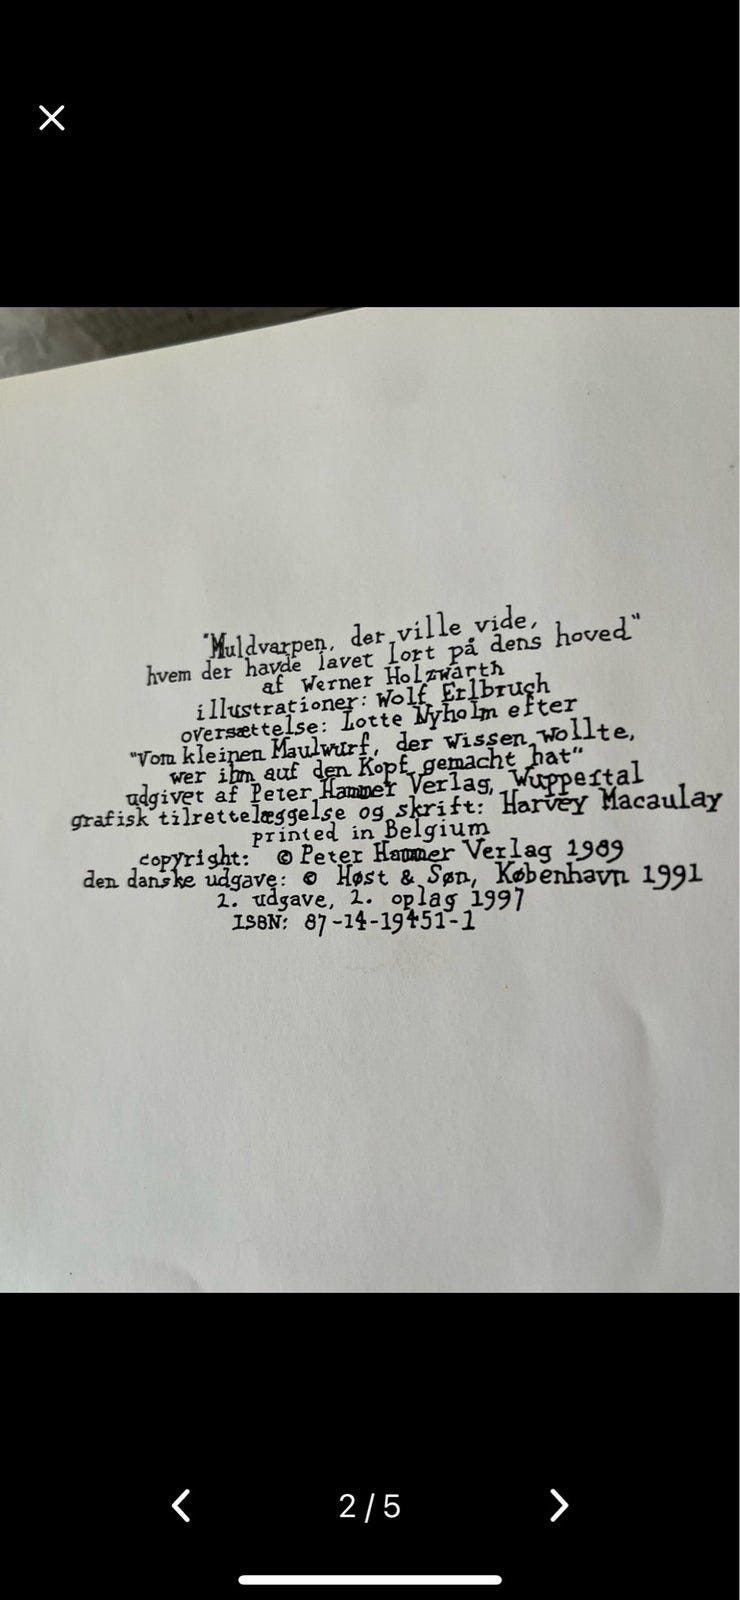 "Muldvarpen, der ville vide,
hvem der havde lavet lort på dens hoved"
af Werner Holzwarth
illustrationer: Wolf Erlbruch
oversættelse: Lotte Nyholm efter
"Vom kleinen Maulwurf, der wissen wollte,
wer ihm auf den Kopf gemacht hat"
udgivet af Peter Hammer Verlag, Wuppertal
grafisk tilrettelæggelse og skrift: Harvey Macaulay
printed in Belgium
copyright: © Peter Hammer Verlag 1989
den danske udgave: © Høst & Søn, København 1991
2. udgave, 2. oplag 1997
ISBN: 87-14-19451-1
2/5